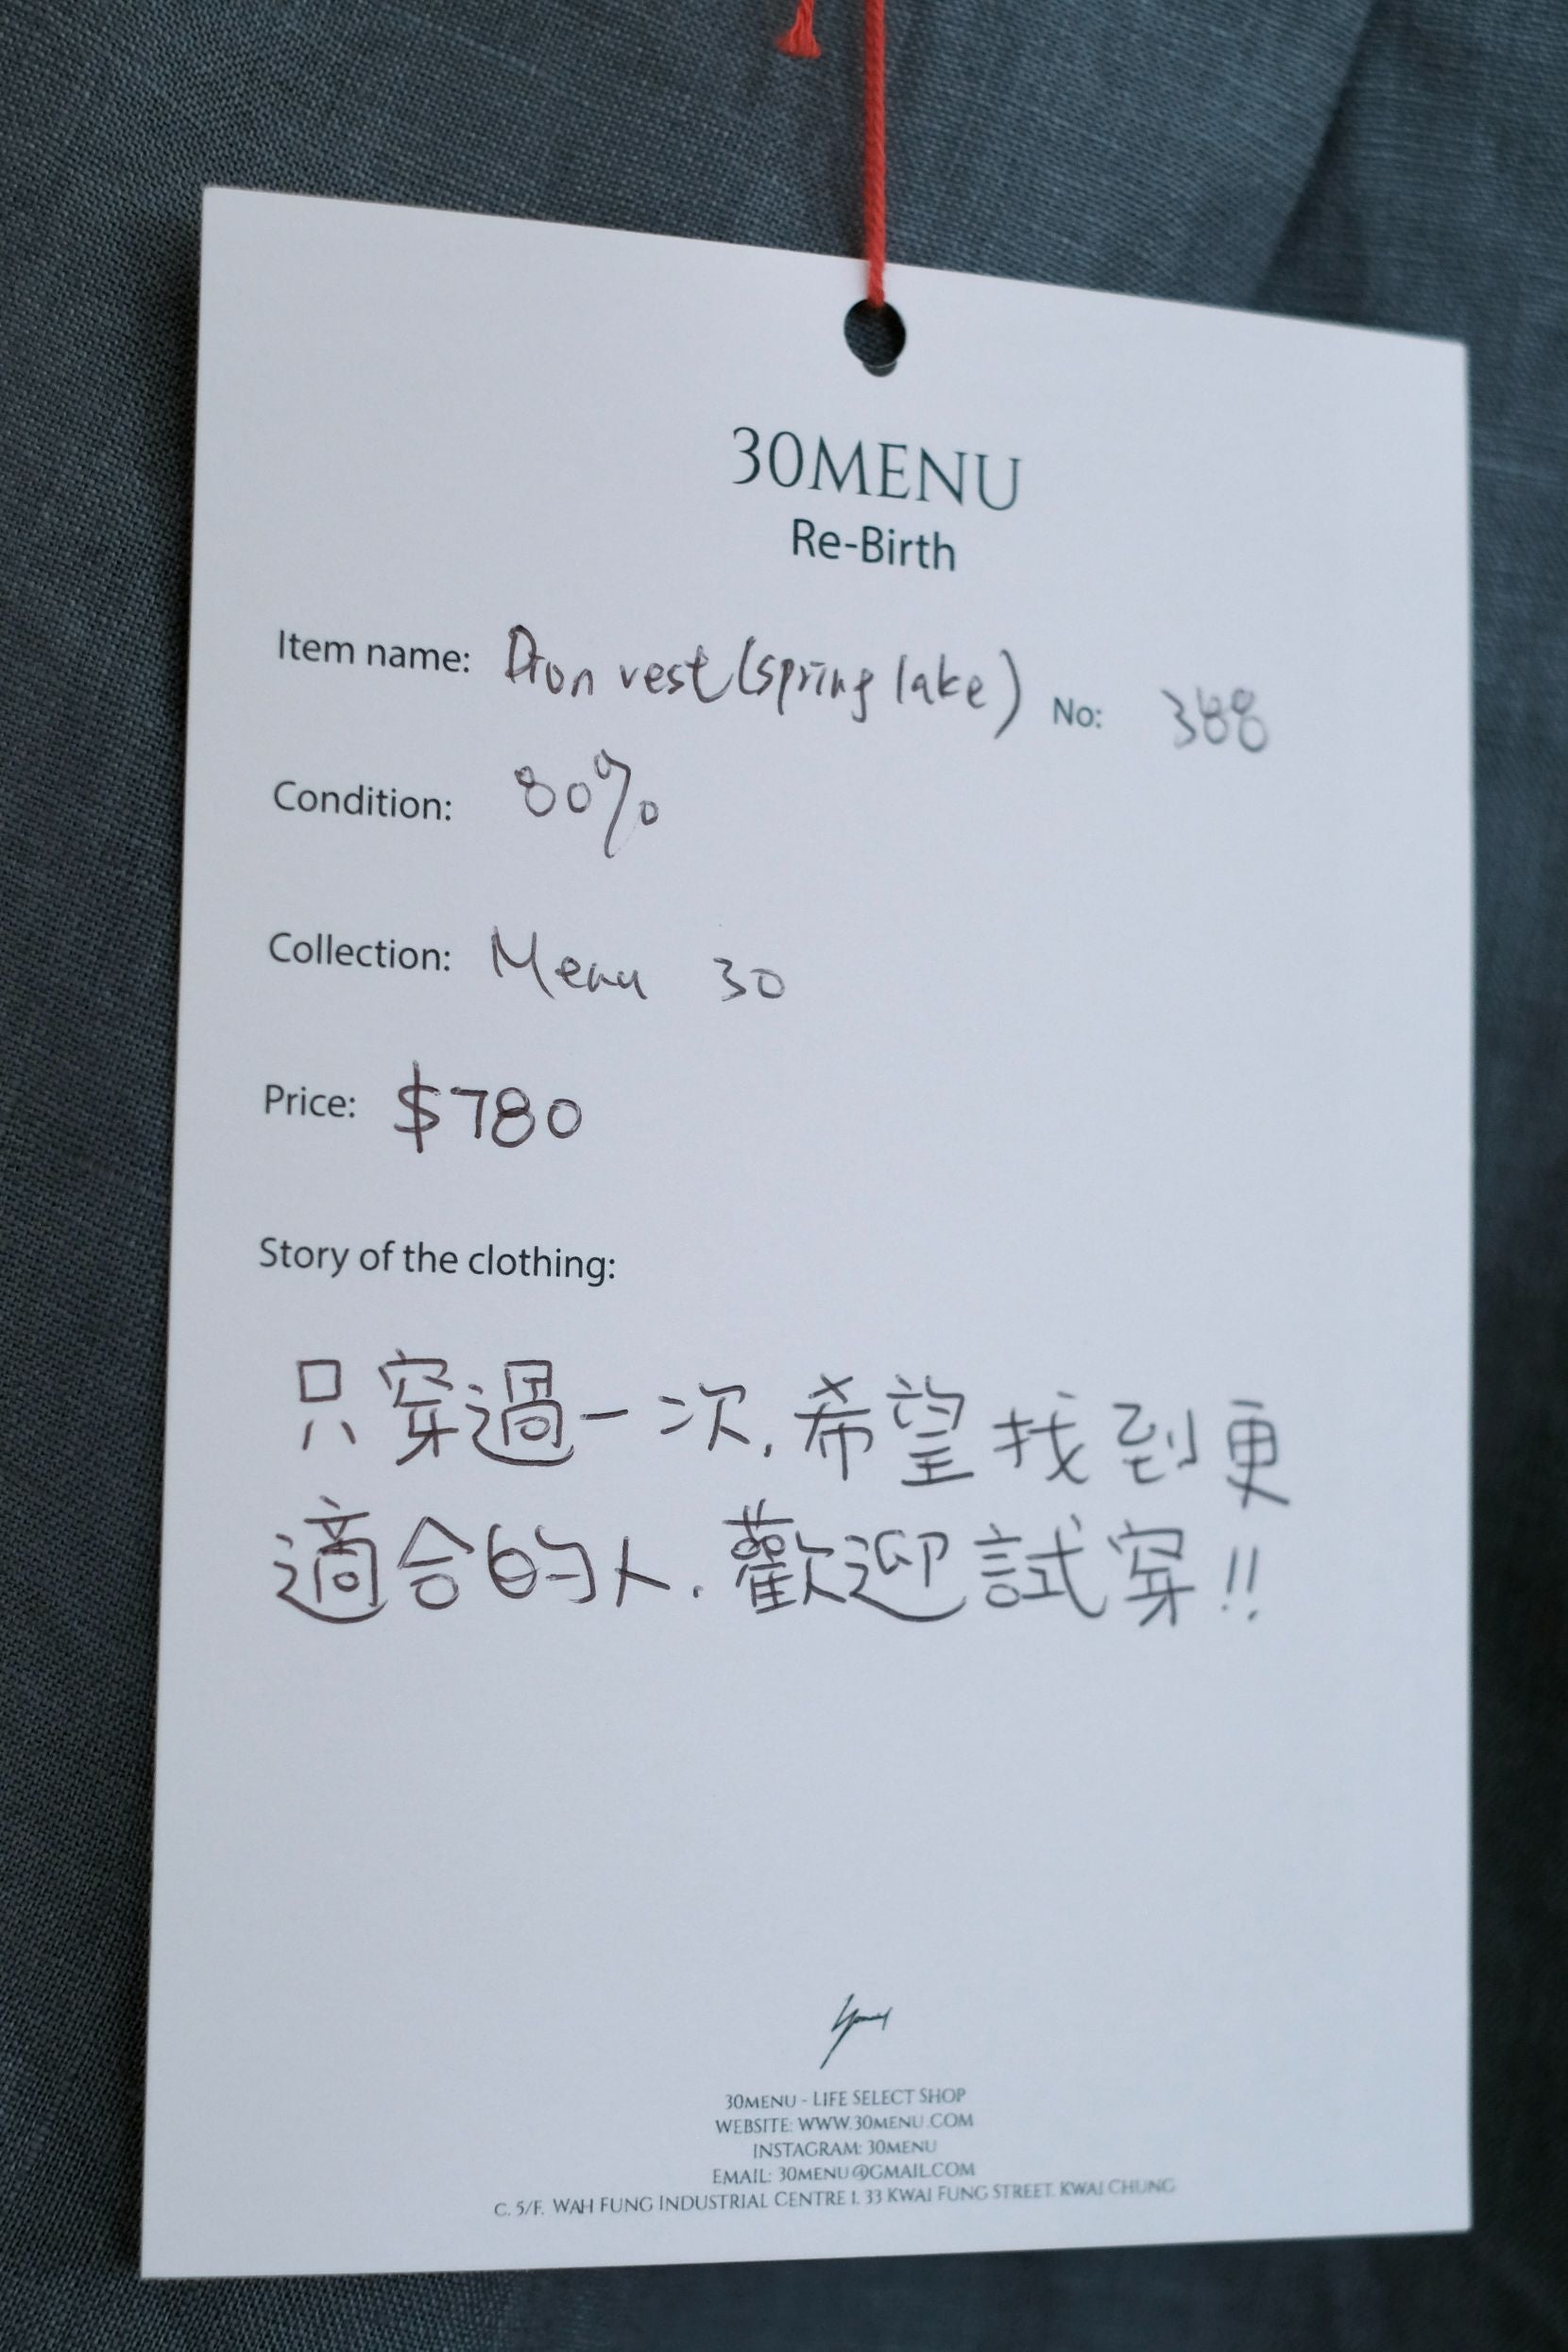 30MENU
Re-Birth
Item name: Dion vest (spring lake) No: 388
Condition: 80%
Collection: Menu 30
Price: $780
Story of the clothing:
只穿過一次, 希望找到更
適合的人, 歡迎試穿!!
30MENU - LIFE SELECT SHOP
WEBSITE: WWW.30MENU.COM
INSTAGRAM: 30MENU
EMAIL: 30MENU@GMAIL.COM
C, 5/F, WAH FUNG INDUSTRIAL CENTRE 1, 33 KWAI FUNG STREET, KWAI CHUNG